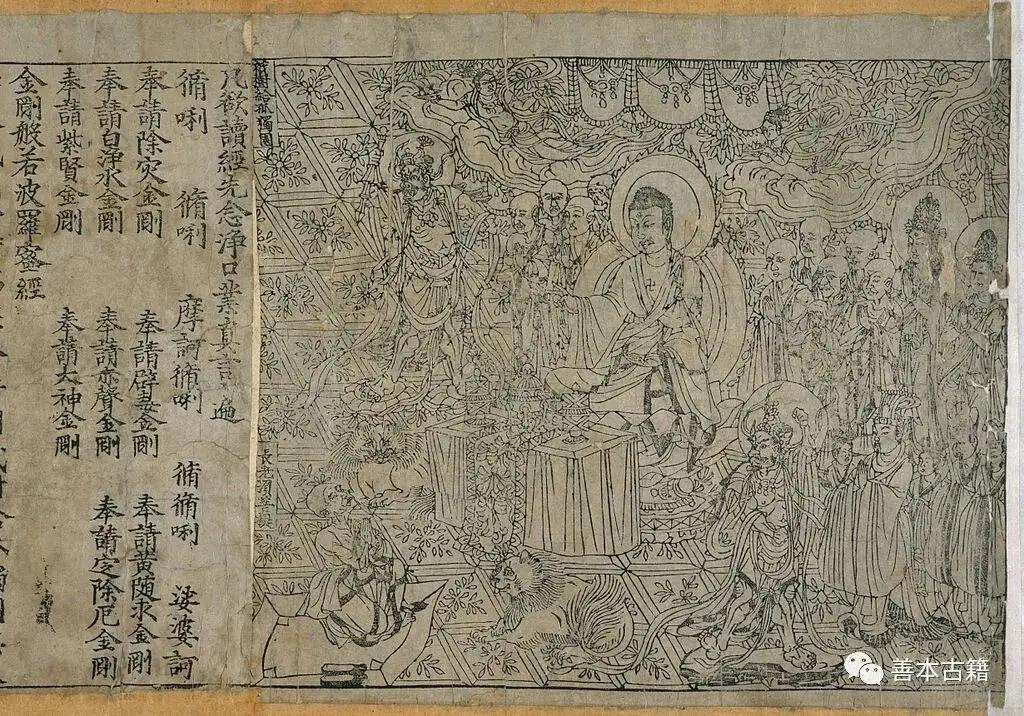 祇樹給孤獨園
長老須菩提
凡欲讀經先念淨口業真言一遍
脩唎 脩唎 摩訶脩唎 脩脩唎 娑婆訶
奉請除灾金剛 奉請辟毒金剛 奉請黃隨求金剛
奉請白淨水金剛 奉請赤聲金剛 奉請定除厄金剛
奉請紫賢金剛 奉請大神金剛
金剛般若波羅蜜經
善本古籍